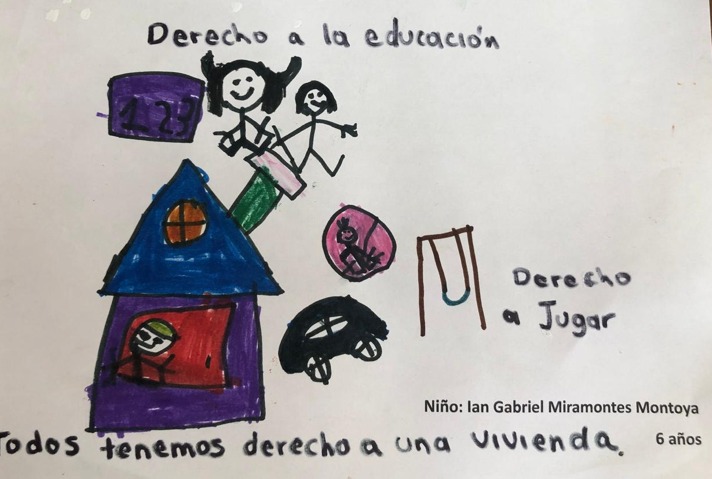 Derecho a la educación
123
Derecho
a Jugar
Niño: Ian Gabriel Miramontes Montoya
6 años
Todos tenemos derecho a una vivienda.